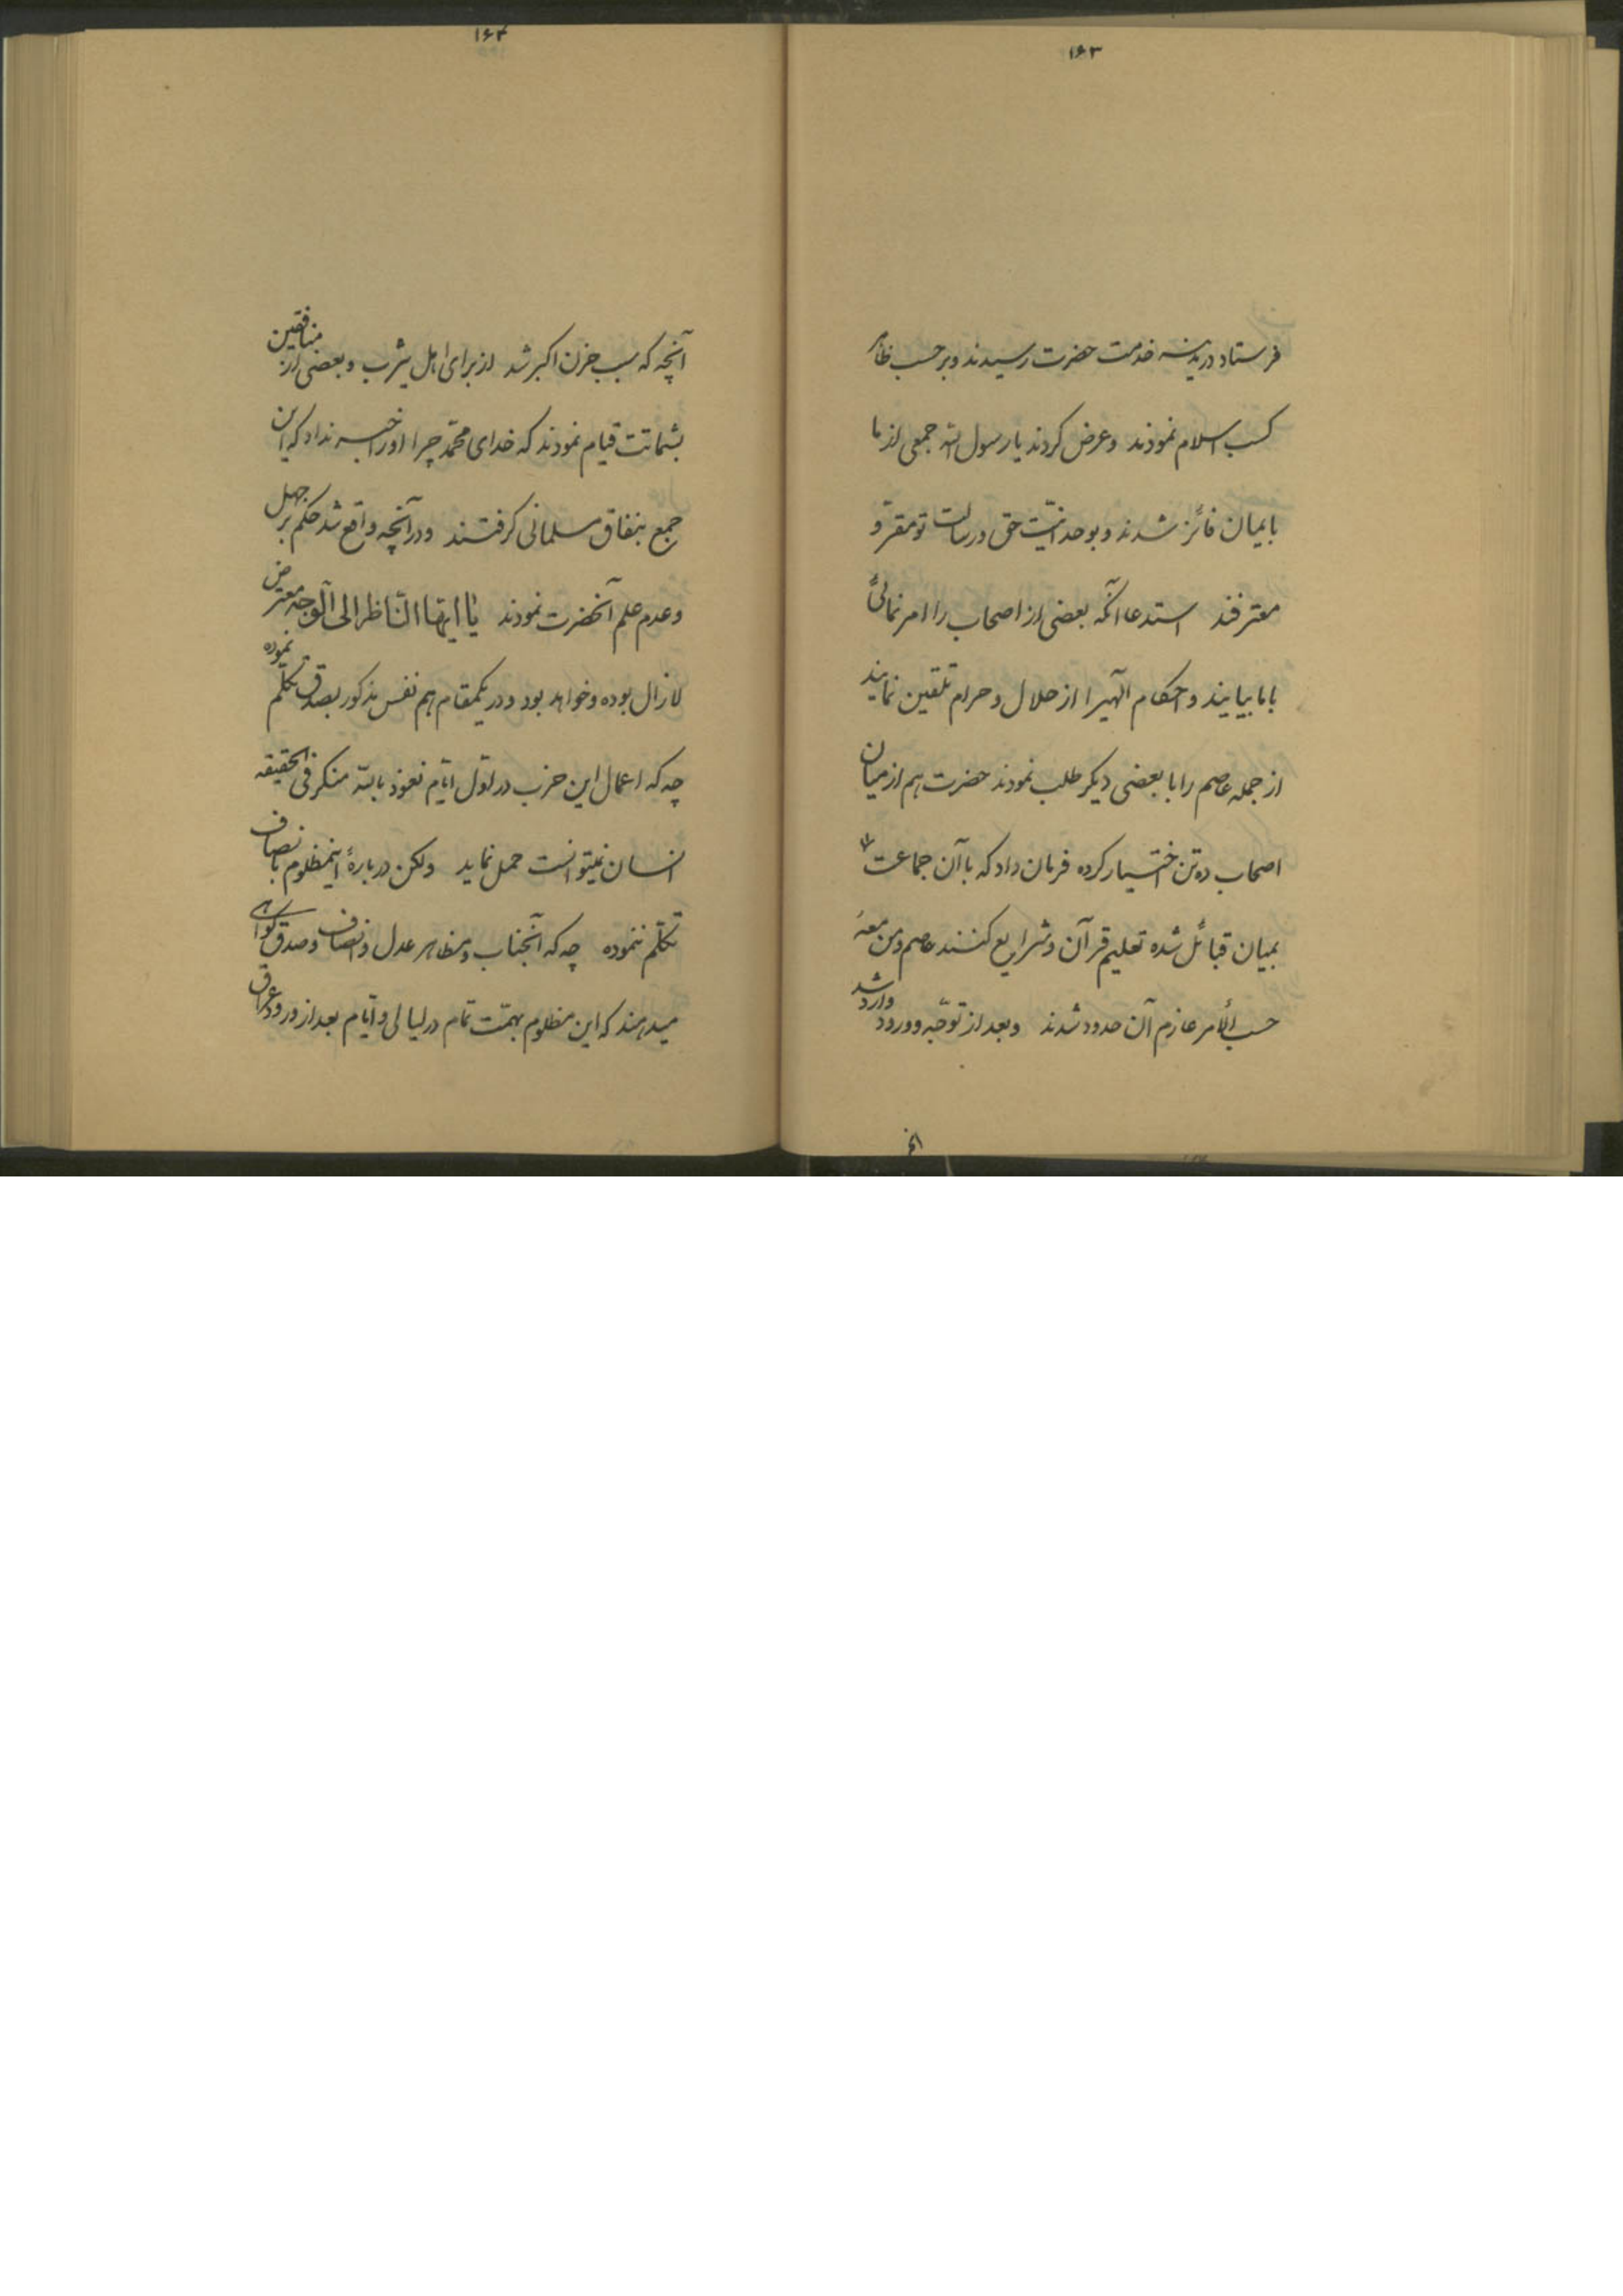 ۱۶۳
فرستاد در مدینه خدمت حضرت رسیدند و برحسب ظاهر
کسب اسلام نمودند وعرض کردند یا رسول الله جمعی از ما
بایمان فائز شدند و بوحدانیّت حق و رسالت تو مقرّ و
معترفند استدعا آنکه بعضی از اصحاب را امر نمائی
با ما بیایند و احکام الهیرا از حلال و حرام تلقین نمایند
از جمله عاصم را با بعضی دیگر طلب نمودند حضرت هم از میان
اصحاب ده تن اختیار کرده فرمان داد که با آن جماعت
بمیان قبائل شده تعلیم قرآن و شرایع کنند عاصم ومن معه
حسب الأمر عازم آن حدود شدند وبعد از توجّه و ورود وارد شد
۱۶۴
آنچه که سبب حزن اکبر شد از برای اهل یثرب و بعضی از منافقین
بشماتت قیام نمودند که خدای محمّد چرا او را خبر نداد که این
جمع بنفاق مسلمانی گرفتند و در آنچه واقع شد حکم بر جهل
وعدم علم آنحضرت نمودند یا ایّها النّاظر الی الوجه معترض
لازال بوده وخواهد بود ودر یکمقام هم نفس مذکور بصدق تکلّم نموده
چه که اعمال این حزب در اوّل ایّام نعوذ بالله منکر فی الحقیقه
انسان نمیتوانست حمل نماید ولکن دربارهٔ اینمظلوم بانصاف
تکلّم ننموده چه که آنجناب و مظاهر عدل و انصاف و صدق گواهی
میدهند که این مظلوم بهمّت تمام در لیالی و ایّام بعد از ورود عراق